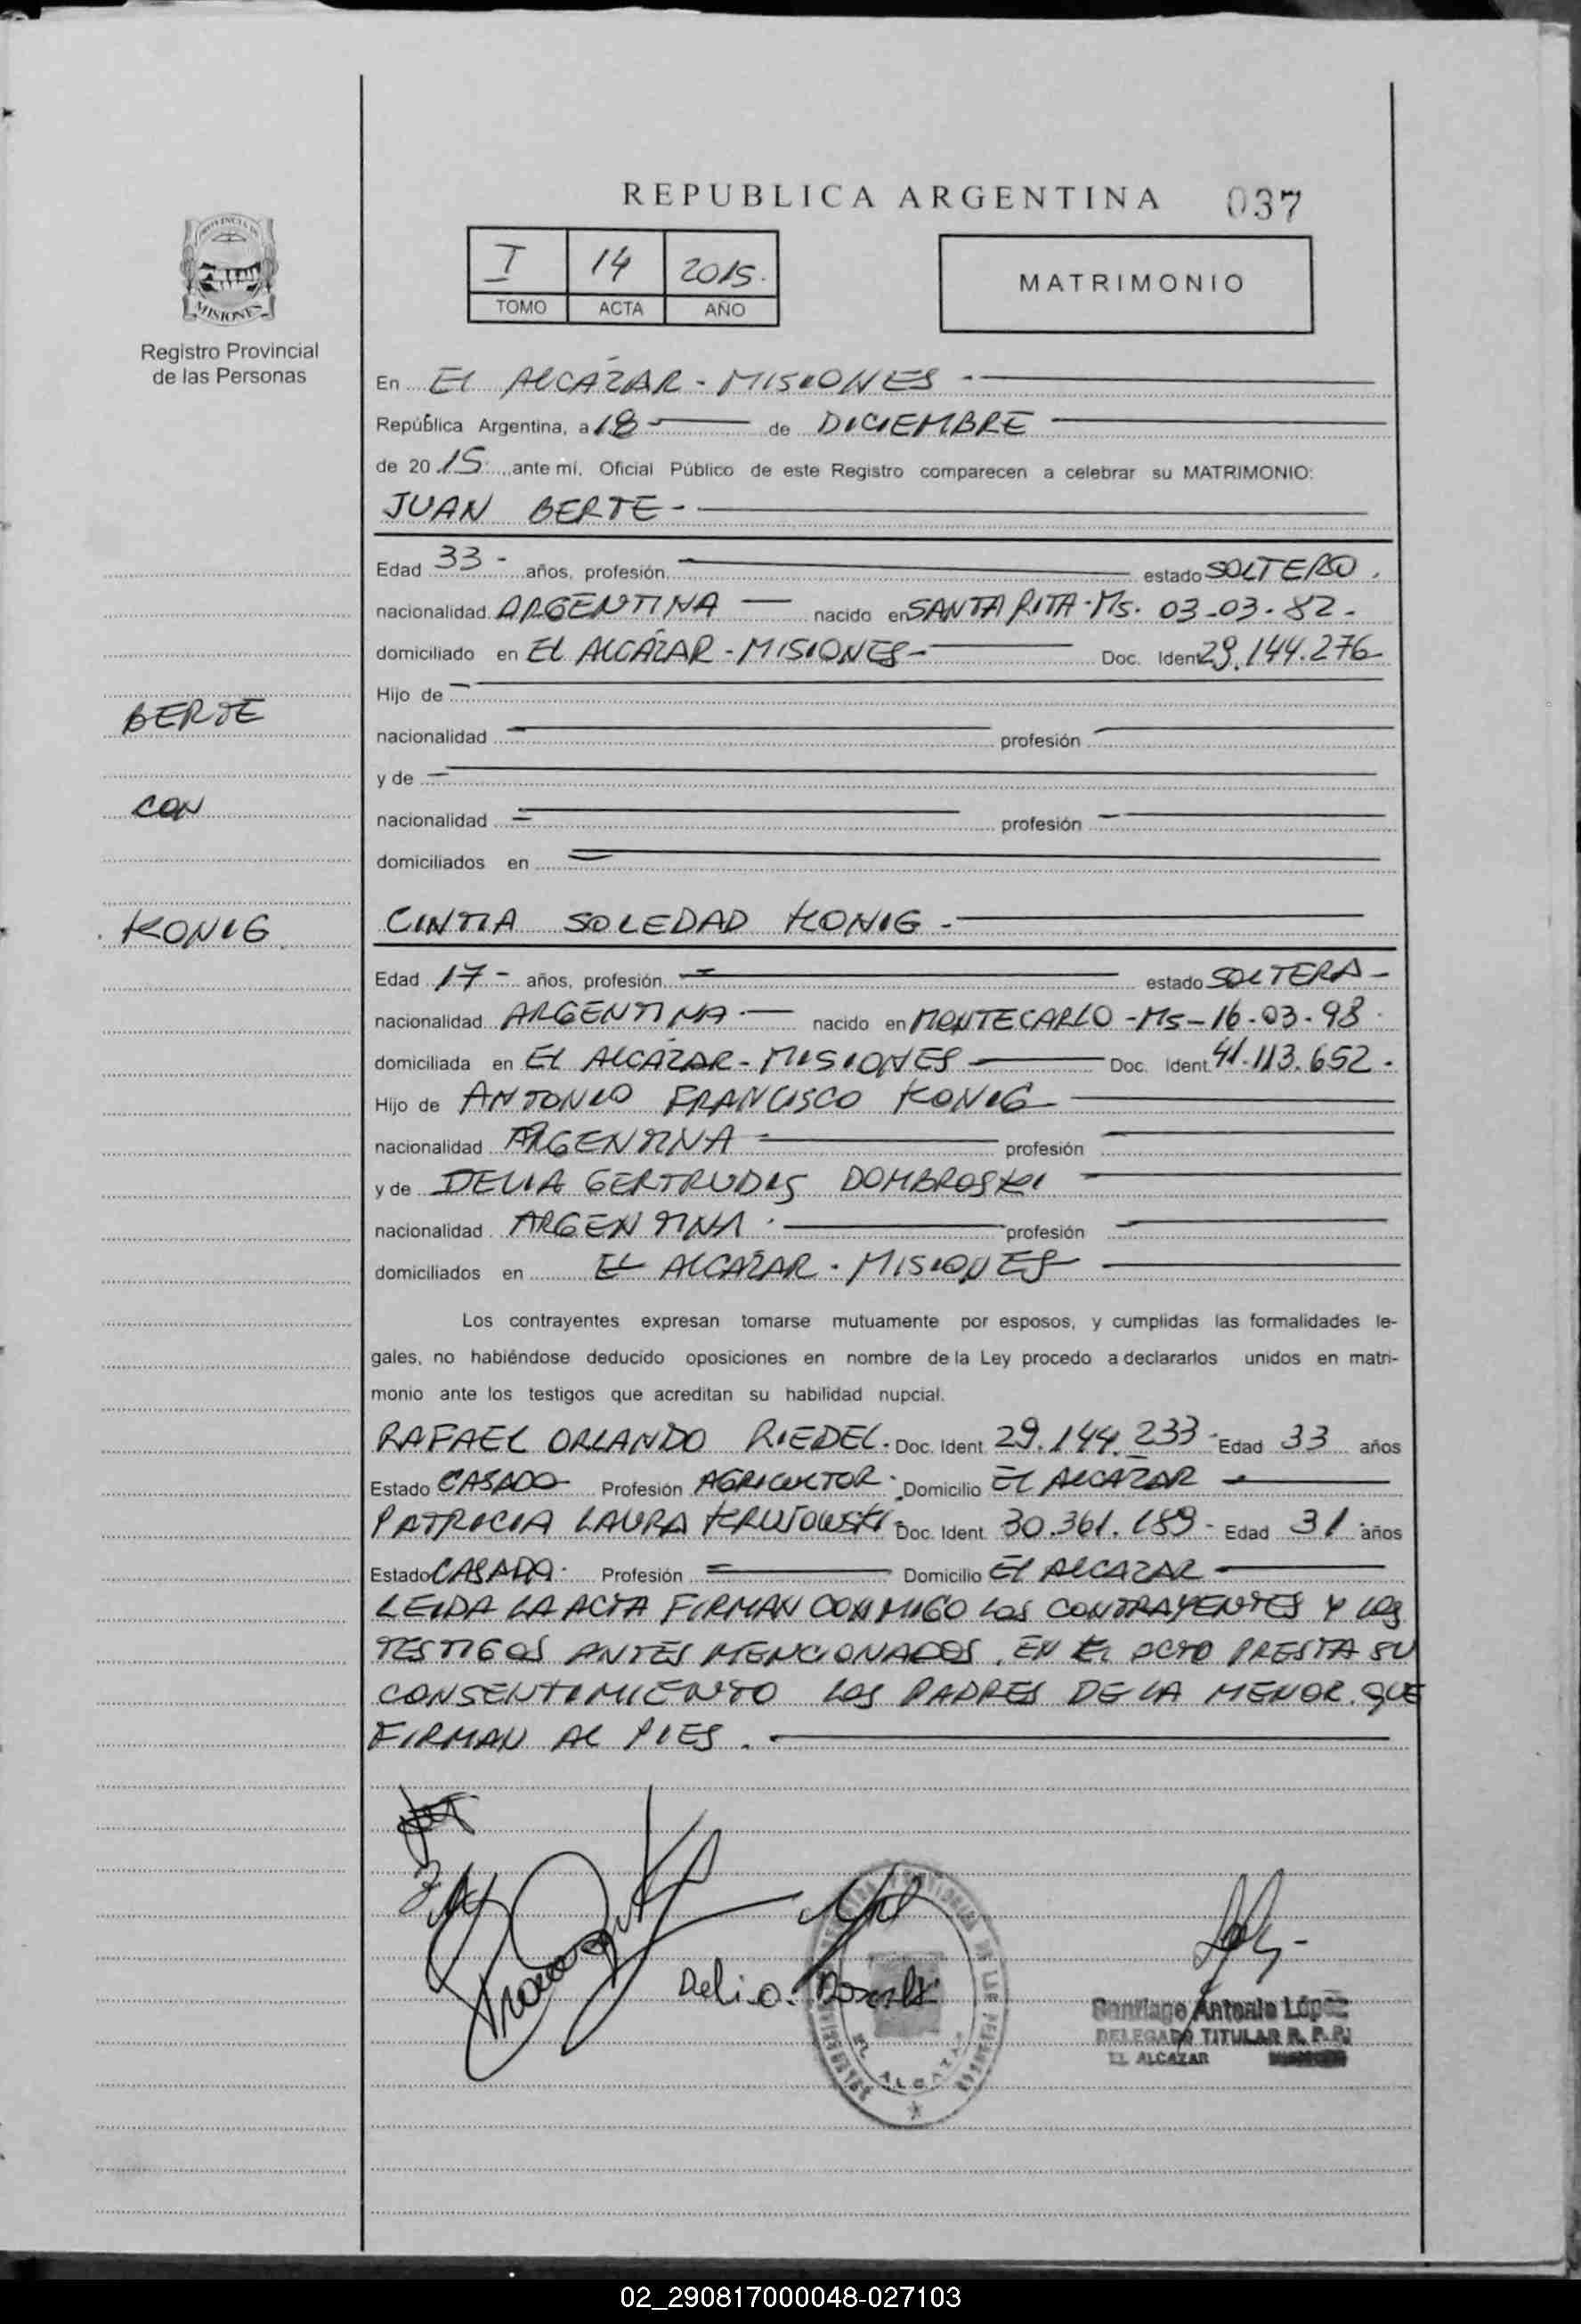 REPUBLICA ARGENTINA 037
PROVINCIA DE
MISIONES
Registro Provincial
de las Personas
I 14 2015.
TOMO ACTA AÑO
MATRIMONIO
En EL ALCÁZAR - MISIONES -
República Argentina, a 18 de DICIEMBRE
de 20 15 ante mí, Oficial Público de este Registro comparecen a celebrar su MATRIMONIO:
JUAN BERTE -
Edad 33 - años, profesión estado SOLTERO.
nacionalidad ARGENTINA nacido en SANTA RITA - Ms. 03-03-82-
domiciliado en EL ALCÁZAR - MISIONES - Doc. Ident 29.144.276
Hijo de
nacionalidad profesión
y de
nacionalidad profesión
domiciliados en
BERTE
CON
KONIG
CINTIA SOLEDAD KONIG -
Edad 17 - años, profesión estado SOLTERA -
nacionalidad ARGENTINA nacido en MONTECARLO - Ms - 16-03-98
domiciliada en EL ALCÁZAR - MISIONES Doc. Ident. 41.113.652.
Hijo de ANTONIO FRANCISCO KONIG
nacionalidad ARGENTINA profesión
y de DELIA GERTRUDIS DOMBROSKI
nacionalidad ARGENTINA profesión
domiciliados en EL ALCÁZAR - MISIONES
Los contrayentes expresan tomarse mutuamente por esposos, y cumplidas las formalidades le-
gales, no habiéndose deducido oposiciones en nombre de la Ley procedo a declararlos unidos en matri-
monio ante los testigos que acreditan su habilidad nupcial.
RAFAEL ORLANDO RIEDEL. Doc. Ident. 29.144.233 - Edad 33 años
Estado CASADO Profesión AGRICULTOR. Domicilio EL ALCÁZAR
PATRICIA LAURA Doc. Ident. 30.361.189 - Edad 31 años
Estado CASADA. Profesión Domicilio EL ALCAZAR
LEIDA LA ACTA FIRMAN CONMIGO LOS CONTRAYENTES Y LOS
TESTIGOS ANTES MENCIONADOS. EN EL ACTO PRESTA SU
CONSENTIMIENTO LOS PADRES DE LA MENOR. QUE
FIRMAN AL PIES.
Delia
Santiago Antonio López
DELEGADO TITULAR R. P. P.
EL ALCAZAR
02_290817000048-027103